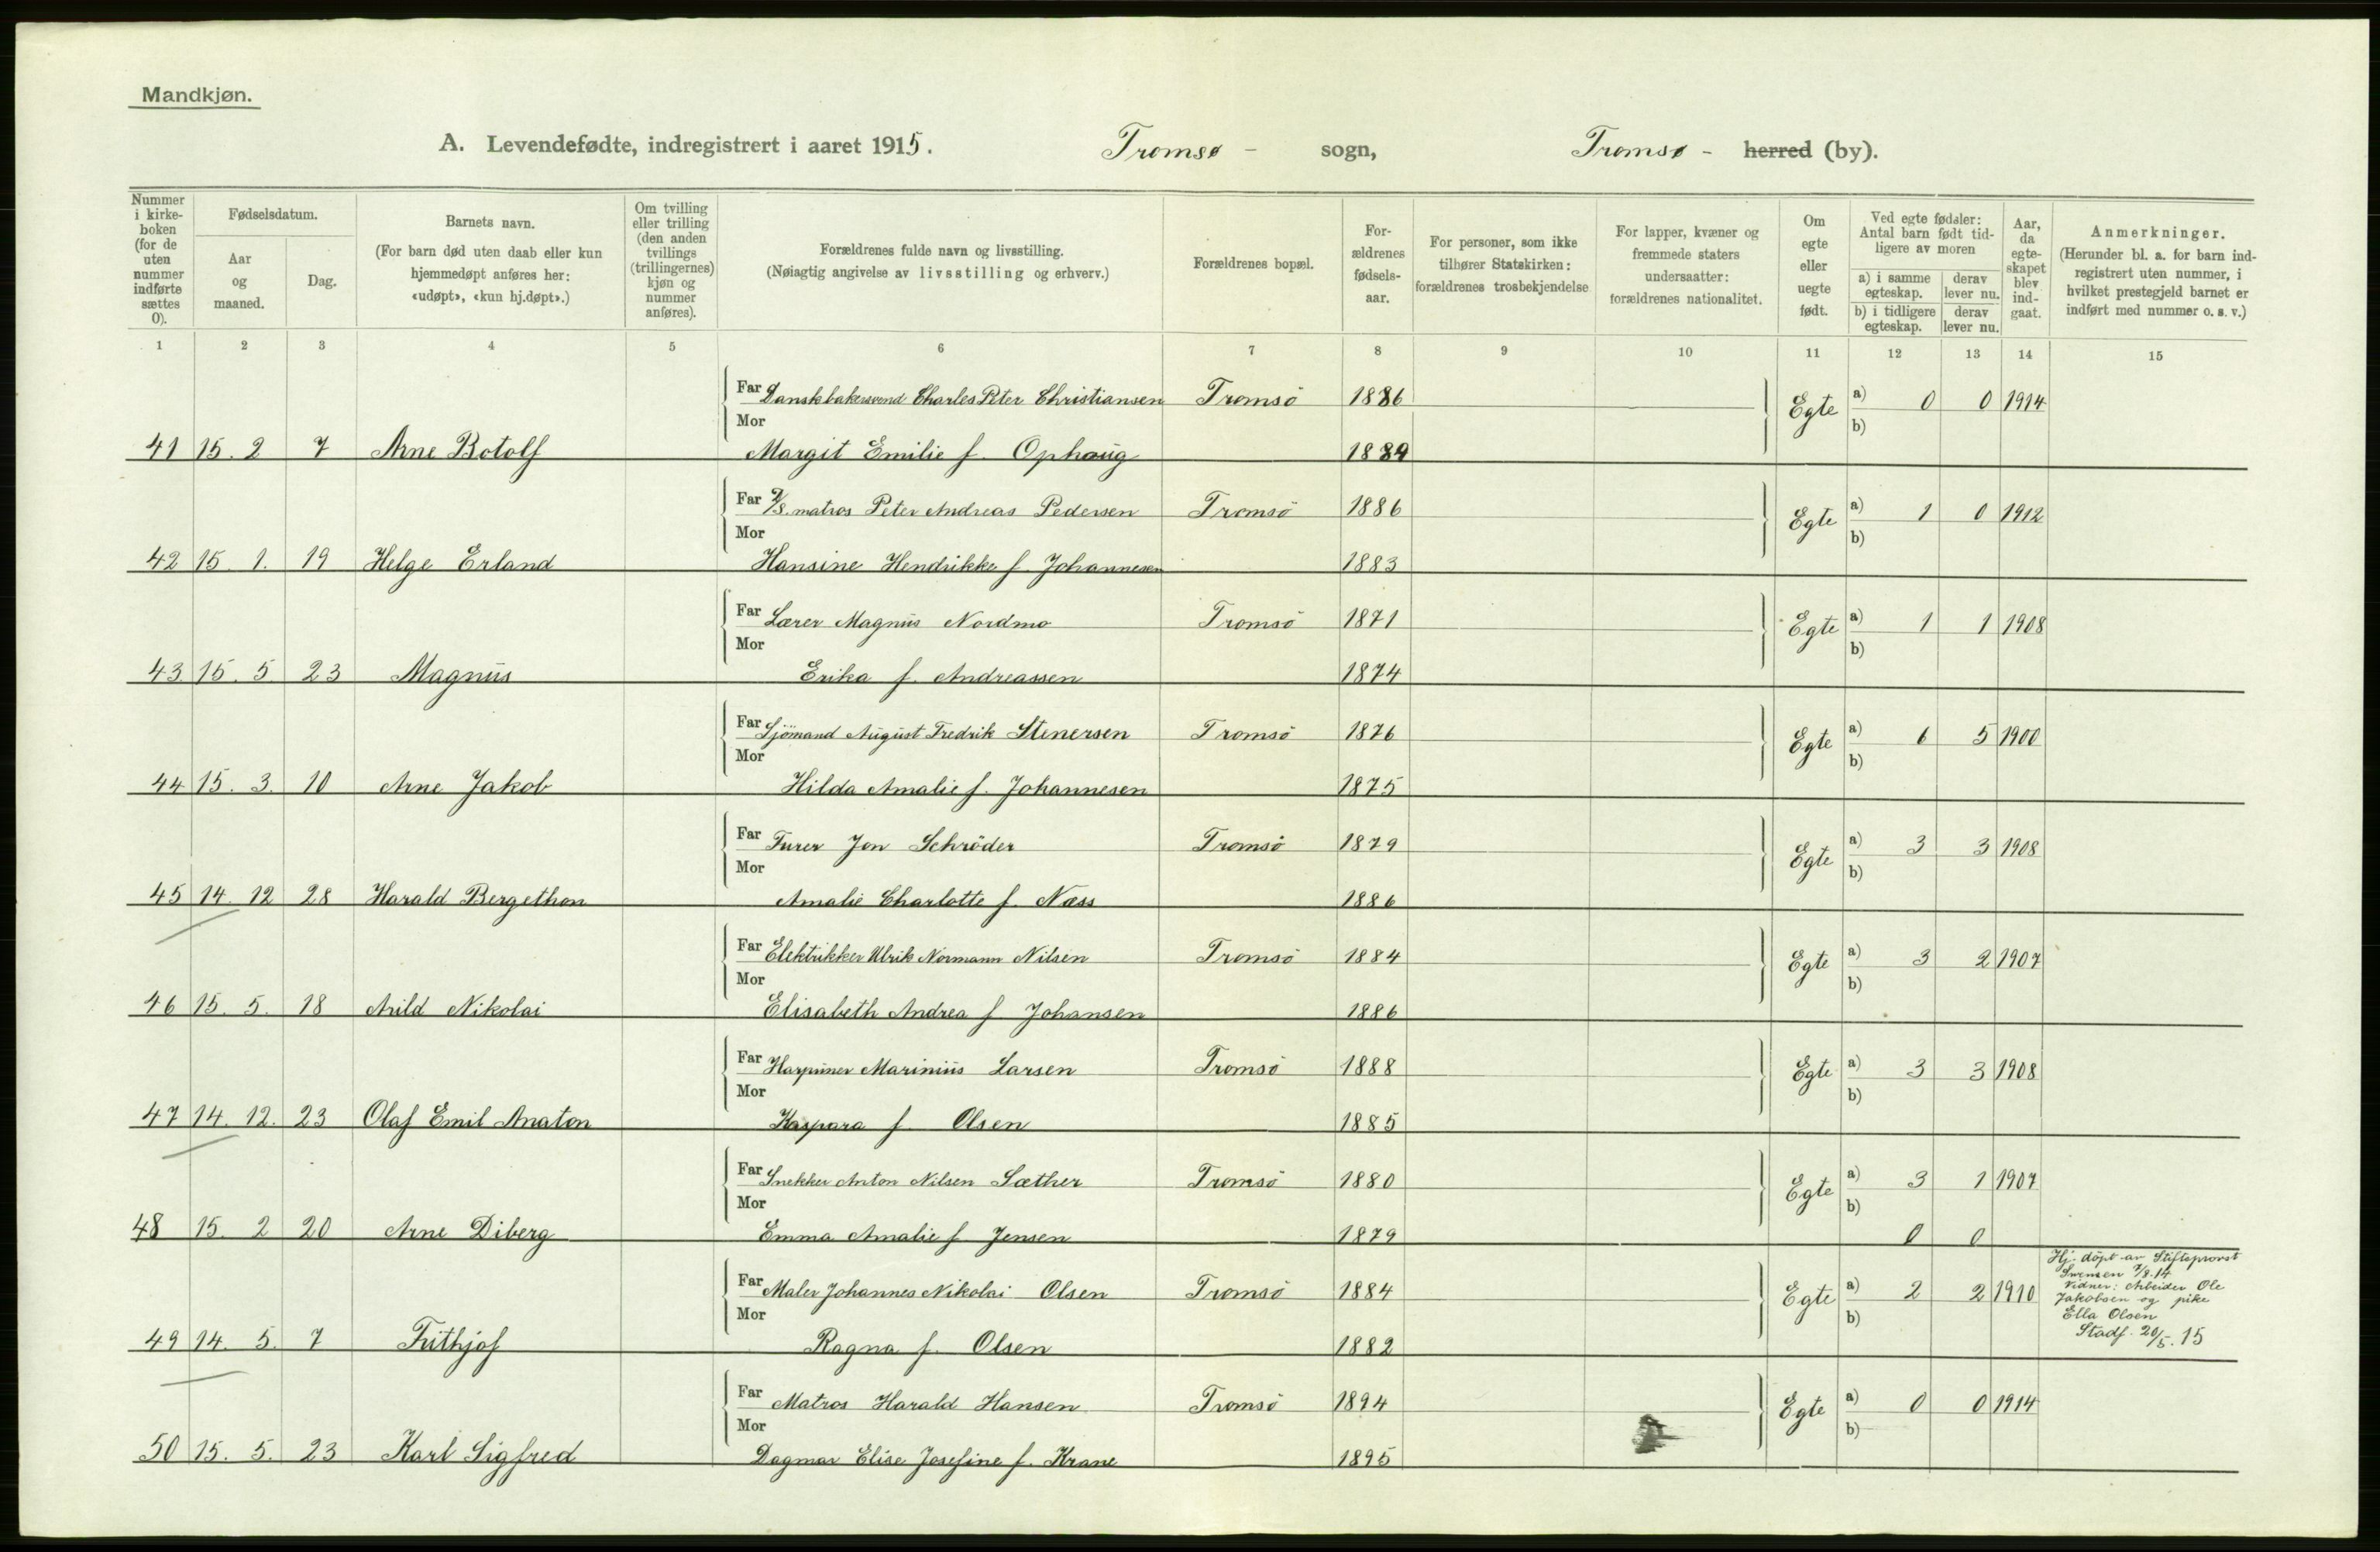 Mandkjøn.
A. Levendefødte, indregistrert i aaret 1915. Tromsø - sogn, Tromsø - herred (by).
Nummer i kirke-boken (for de uten nummer indførte sættes 0).
Fødselsdatum.
Aar og maaned.
Dag.
Barnets navn.
(For barn død uten daab eller kun hjemmedøpt anføres her: «udøpt», «kun hj.døpt».)
Om tvilling eller trilling (den anden tvillings (trillingernes) kjøn og nummer anføres).
Forældrenes fulde navn og livsstilling.
(Nøiagtig angivelse av livsstilling og erhverv.)
Forældrenes bopæl.
For-ældrenes fødsels-aar.
For personer, som ikke tilhører Statskirken: forældrenes trosbekjendelse
For lapper, kvæner og fremmede staters undersaatter: forældrenes nationalitet.
Om egte eller uegte født.
Ved egte fødsler: Antal barn født tid-ligere av moren
a) i samme egteskap. derav lever nu.
b) i tidligere egteskap. derav lever nu.
Aar, da egte-skapet blev ind-gaat.
Anmerkninger.
(Herunder bl. a. for barn ind-registrert uten nummer, i hvilket prestegjeld barnet er indført med nummer o. s. v.)
1 2 3 4 5 6 7 8 9 10 11 12 13 14 15
Far Dansk bakersvend Charles Peter Christiansen Tromsö 1886 Egte a) 0 0 1914
Mor b)
41 15. 2 7 Arne Botolf Margit Emilie f. Ophaug 1889
Far D/S. matros Peter Andreas Pedersen Tromsö 1886 Egte a) 1 0 1912
Mor b)
42 15. 1. 19 Helge Erland Hansine Hendrikke f. Johannesen 1883
Far Lærer Magnus Nordmo Tromsö 1871 Egte a) 1 1 1908
Mor b)
43 15. 5 23 Magnus Erika f. Andreassen 1874
Far Sjömand August Fredrik Stenersen Tromsö 1876 Egte a) 6 5 1900
Mor b)
44 15. 3. 10 Arne Jakob Hilda Amalie f. Johannesen 1875
Far Furer Jon Schröder Tromsö 1879 Egte a) 3 3 1908
Mor b)
45 14. 12 28 Harald Bergethon Amalie Charlotte f. Næss 1886
Far Elektrikker Ulrik Normann Nilsen Tromsö 1884 Egte a) 3 2 1907
Mor b)
46 15. 5. 18 Arild Nikolai Elisabeth Andrea f Johansen 1886
Far Harpuner Marinius Larsen Tromsö 1888 Egte a) 3 3 1908
Mor b)
47 14. 12. 23 Olaf Emil Anaton Kaspara f. Olsen 1885
Far Snekker Anton Nilsen Sæther Tromsö 1880 Egte a) 3 1 1907
Mor b)
48 15. 2 20 Arne Diberg Emma Amalie f Jensen 1879 0 0
Far Maler Johannes Nikolai Olsen Tromsö 1884 Egte a) 2 2 1910
Mor b)
49 14. 5. 7 Frithjof Ragna f. Olsen 1882
Hj. döpt av Stiftsprovst
Swensen 7/8.14
Vidner: Arbeider Ole
Jakobsen og pike
Ella Olsen
Stadf. 20/5. 15
Far Matros Harald Hansen Tromsö 1894 Egte a) 0 0 1914
Mor b)
50 15. 5. 23 Karl Sigfred Dagmar Elise Josefine f. Krane 1895